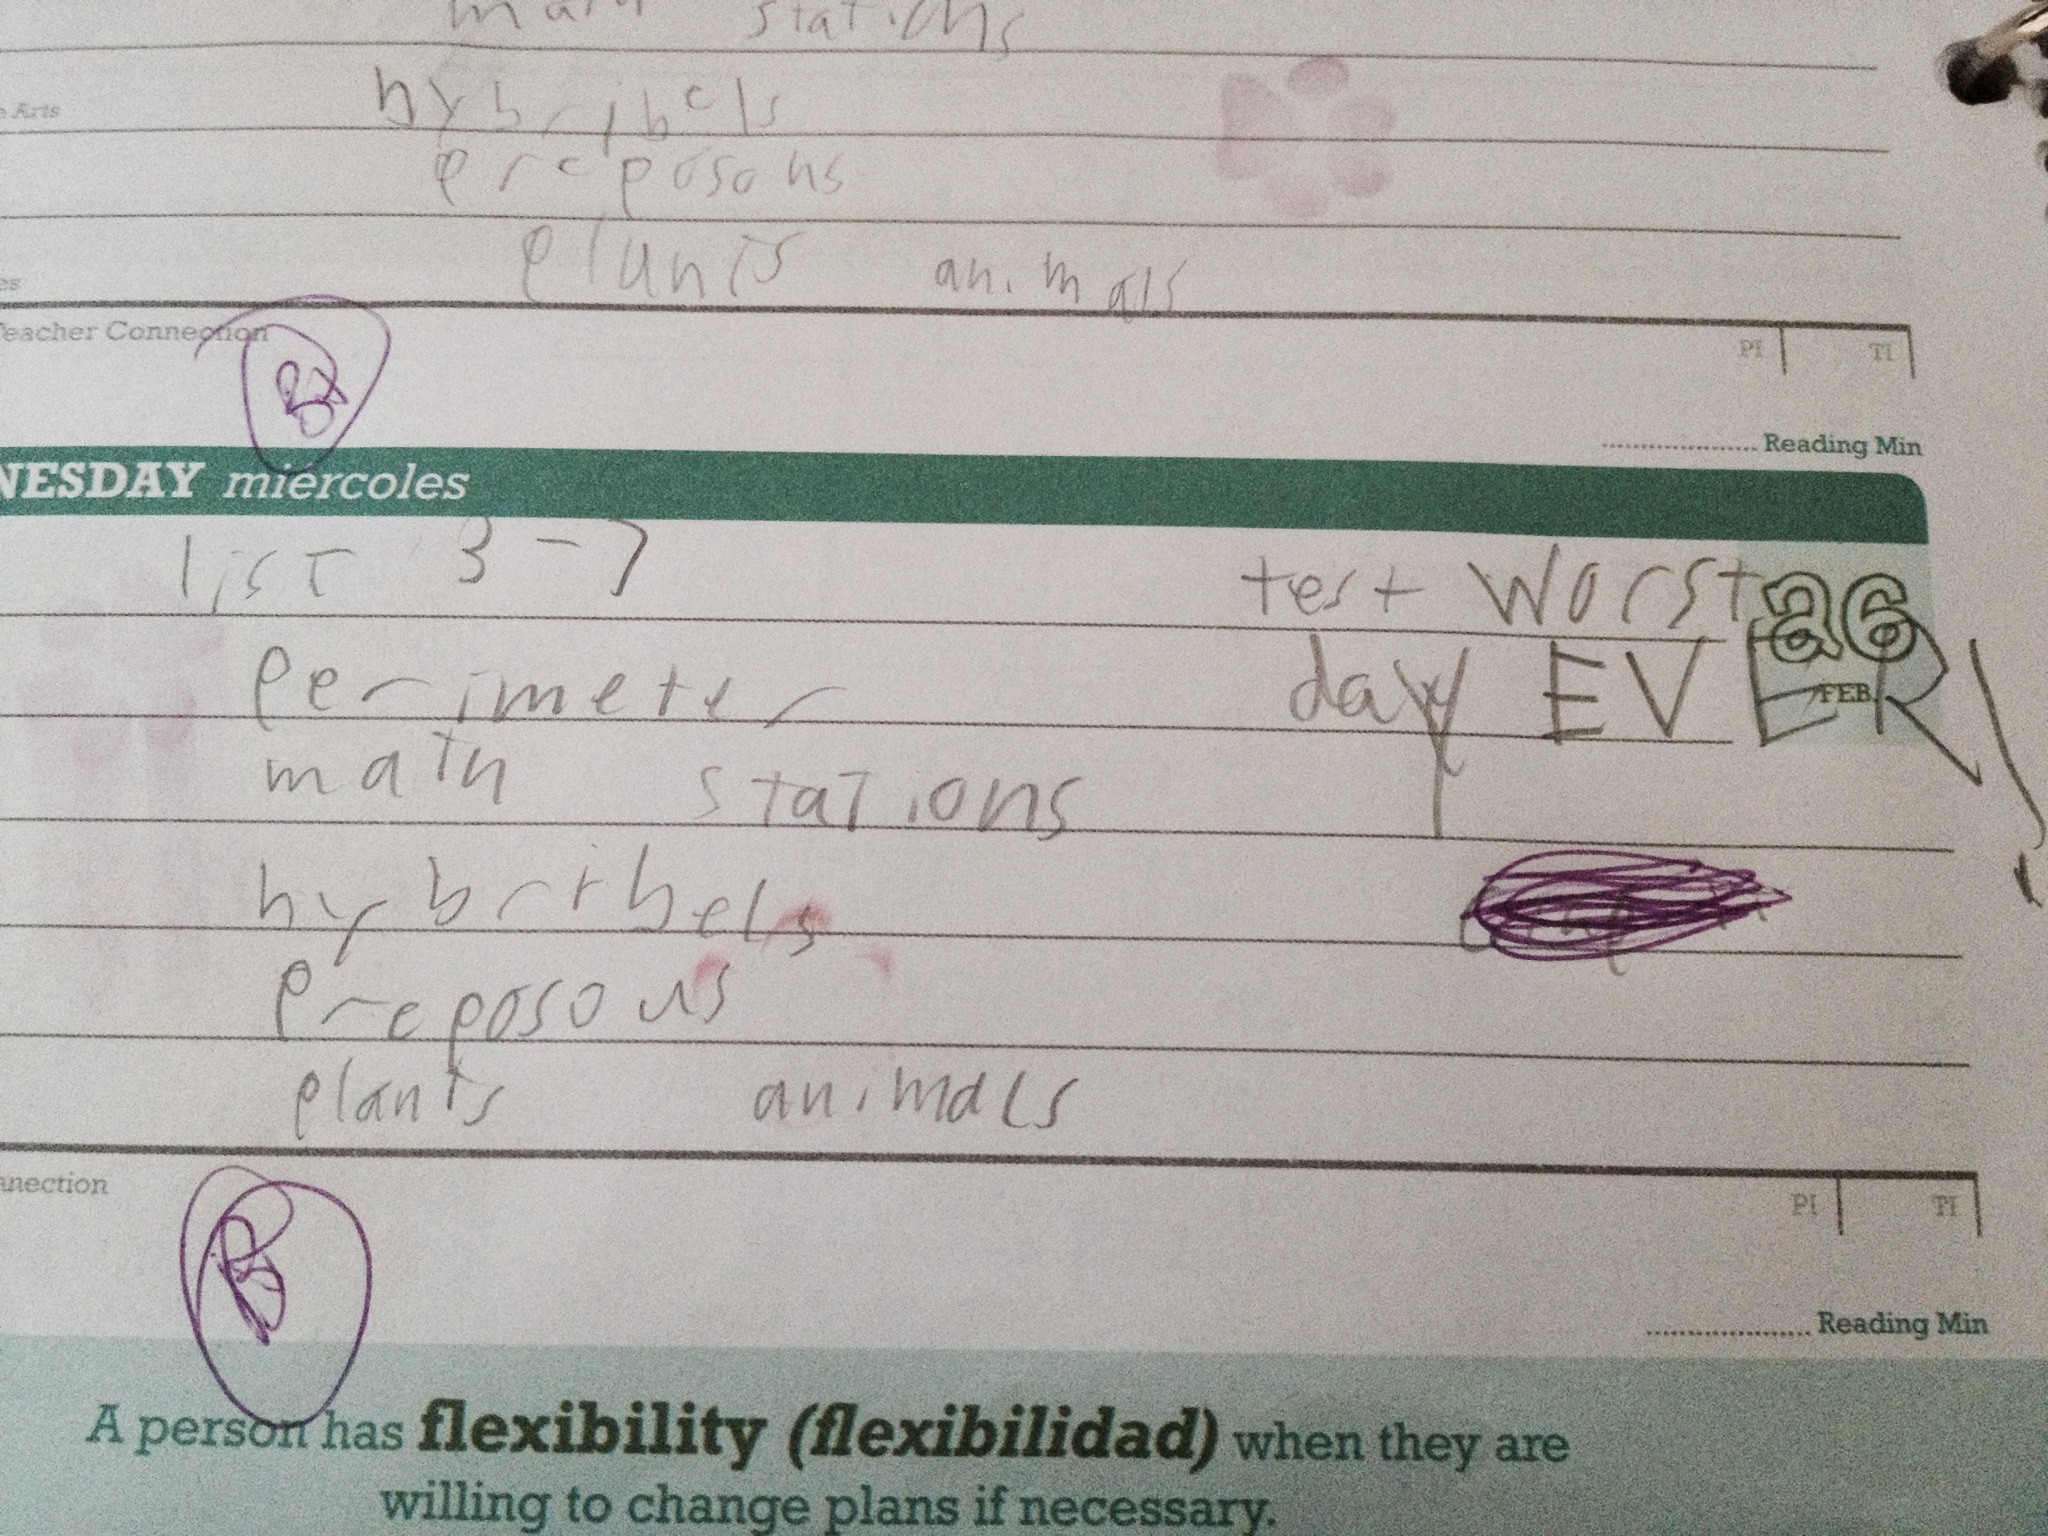 math stations
e Arts hybribels
preposons
plants animals
es
Teacher Connection
PI TI
Reading Min
NESDAY miércoles
list 3-7 test Worst 26
perimeter day EVER! FEB.
math stations
hybribels
preposons
plants animals
nnection
PI TI
Reading Min
A person has flexibility (flexibilidad) when they are
willing to change plans if necessary.